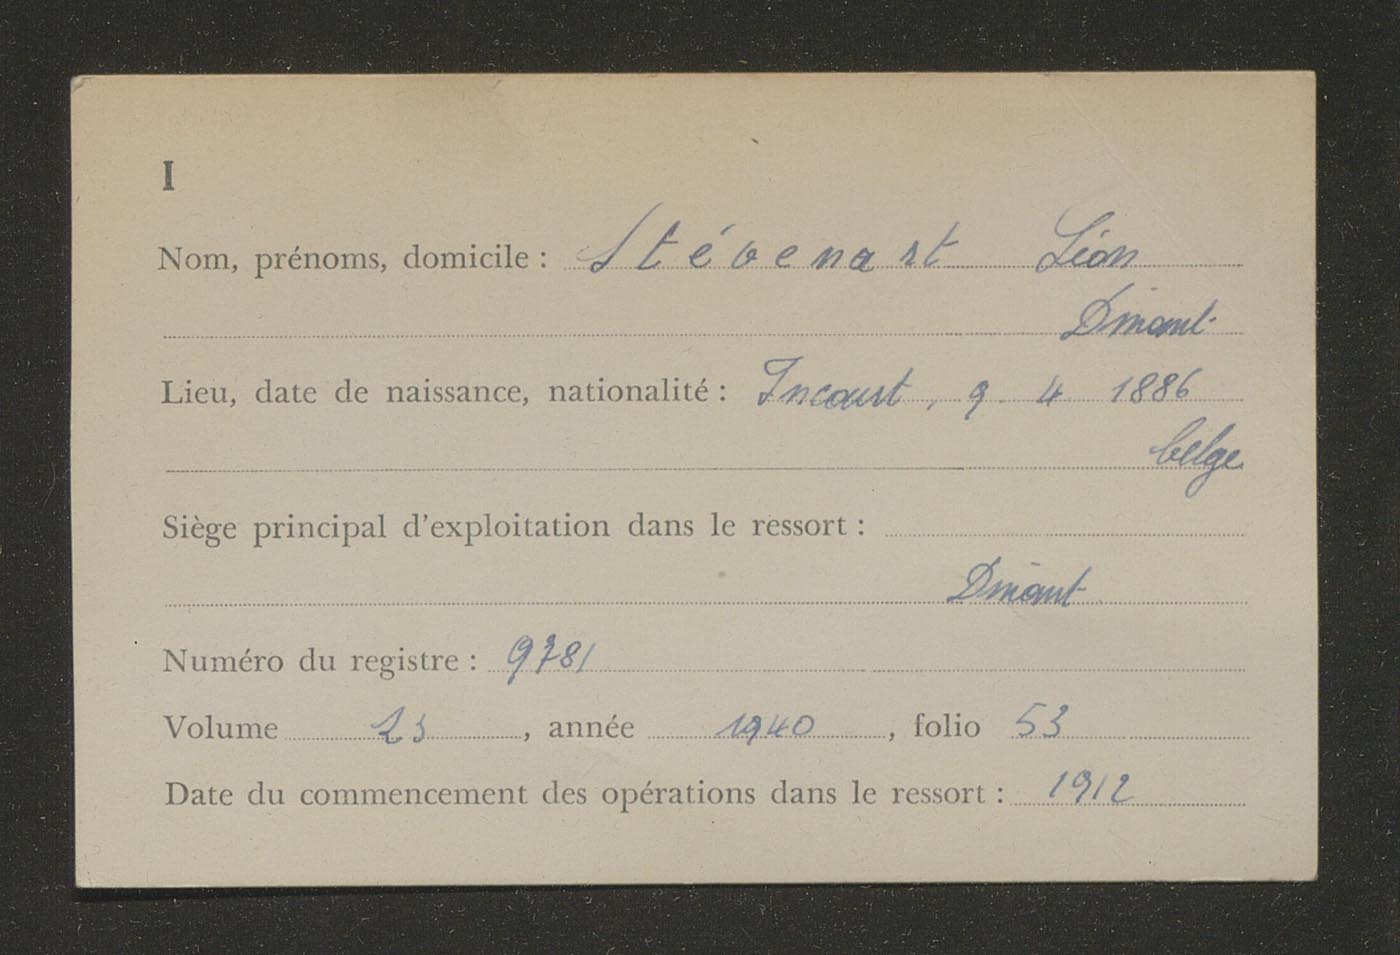 I
Nom, prénoms, domicile : Stévenart Léon
Dinant
Lieu, date de naissance, nationalité : Incourt, 9. 4 1886
belge
Siège principal d'exploitation dans le ressort :
Dinant
Numéro du registre : 9781
Volume 23, année 1940, folio 53
Date du commencement des opérations dans le ressort : 1912